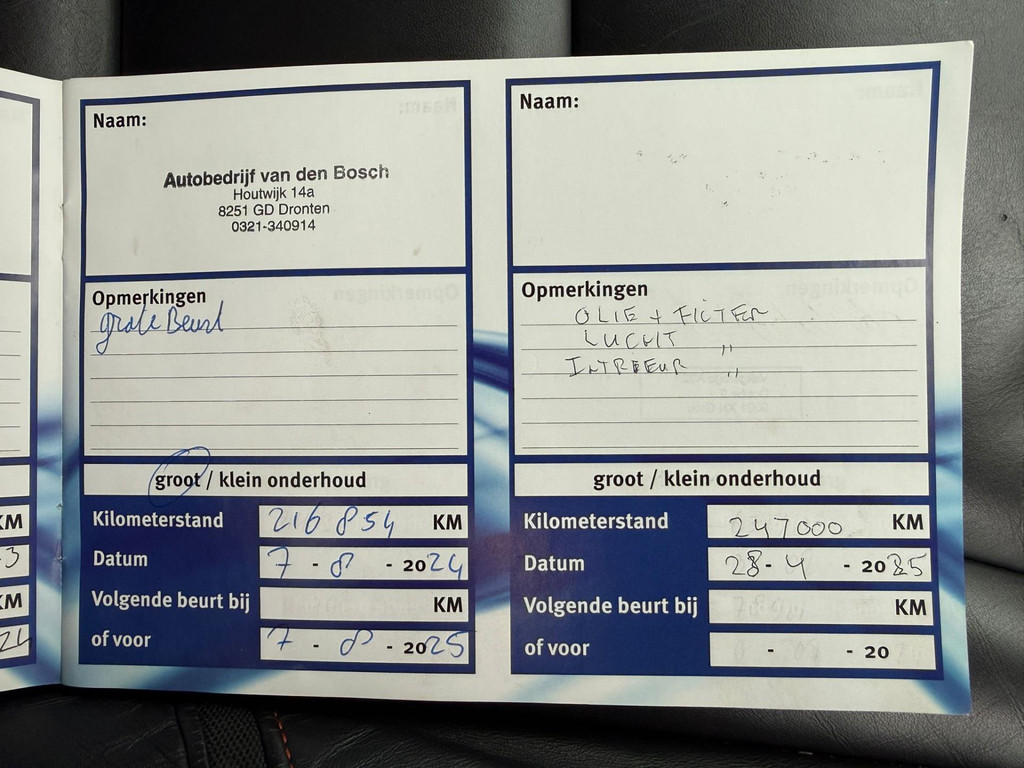 Naam:
Autobedrijf van den Bosch
Houtwijk 14a
8251 GD Dronten
0321-340914
Opmerkingen
grote Beurt
groot / klein onderhoud
Kilometerstand 216 854 KM
Datum 7 - 8 - 2024
Volgende beurt bij KM
of voor 7 - 8 - 2025
Naam:
Opmerkingen
OLIE + FILTER
LUCHT "
INTREEUR "
groot / klein onderhoud
Kilometerstand 247000 KM
Datum 28 - 4 - 20
Volgende beurt bij KM
of voor - - 20
KM
3
KM
24